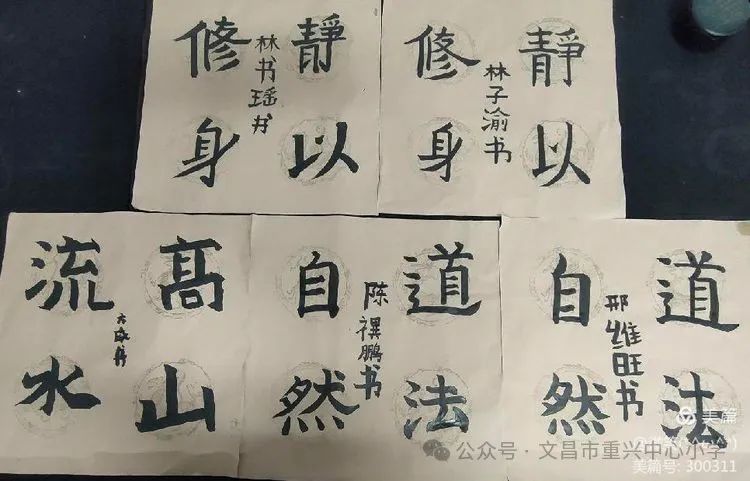 靜以
修身
林书瑶书
靜以
修身
林子渝书
高山
流水
道法
自然
陈禩鹏书
道法
自然
邢维旺书
美篇
公众号·文昌市重兴中心小学
美篇号: 300311